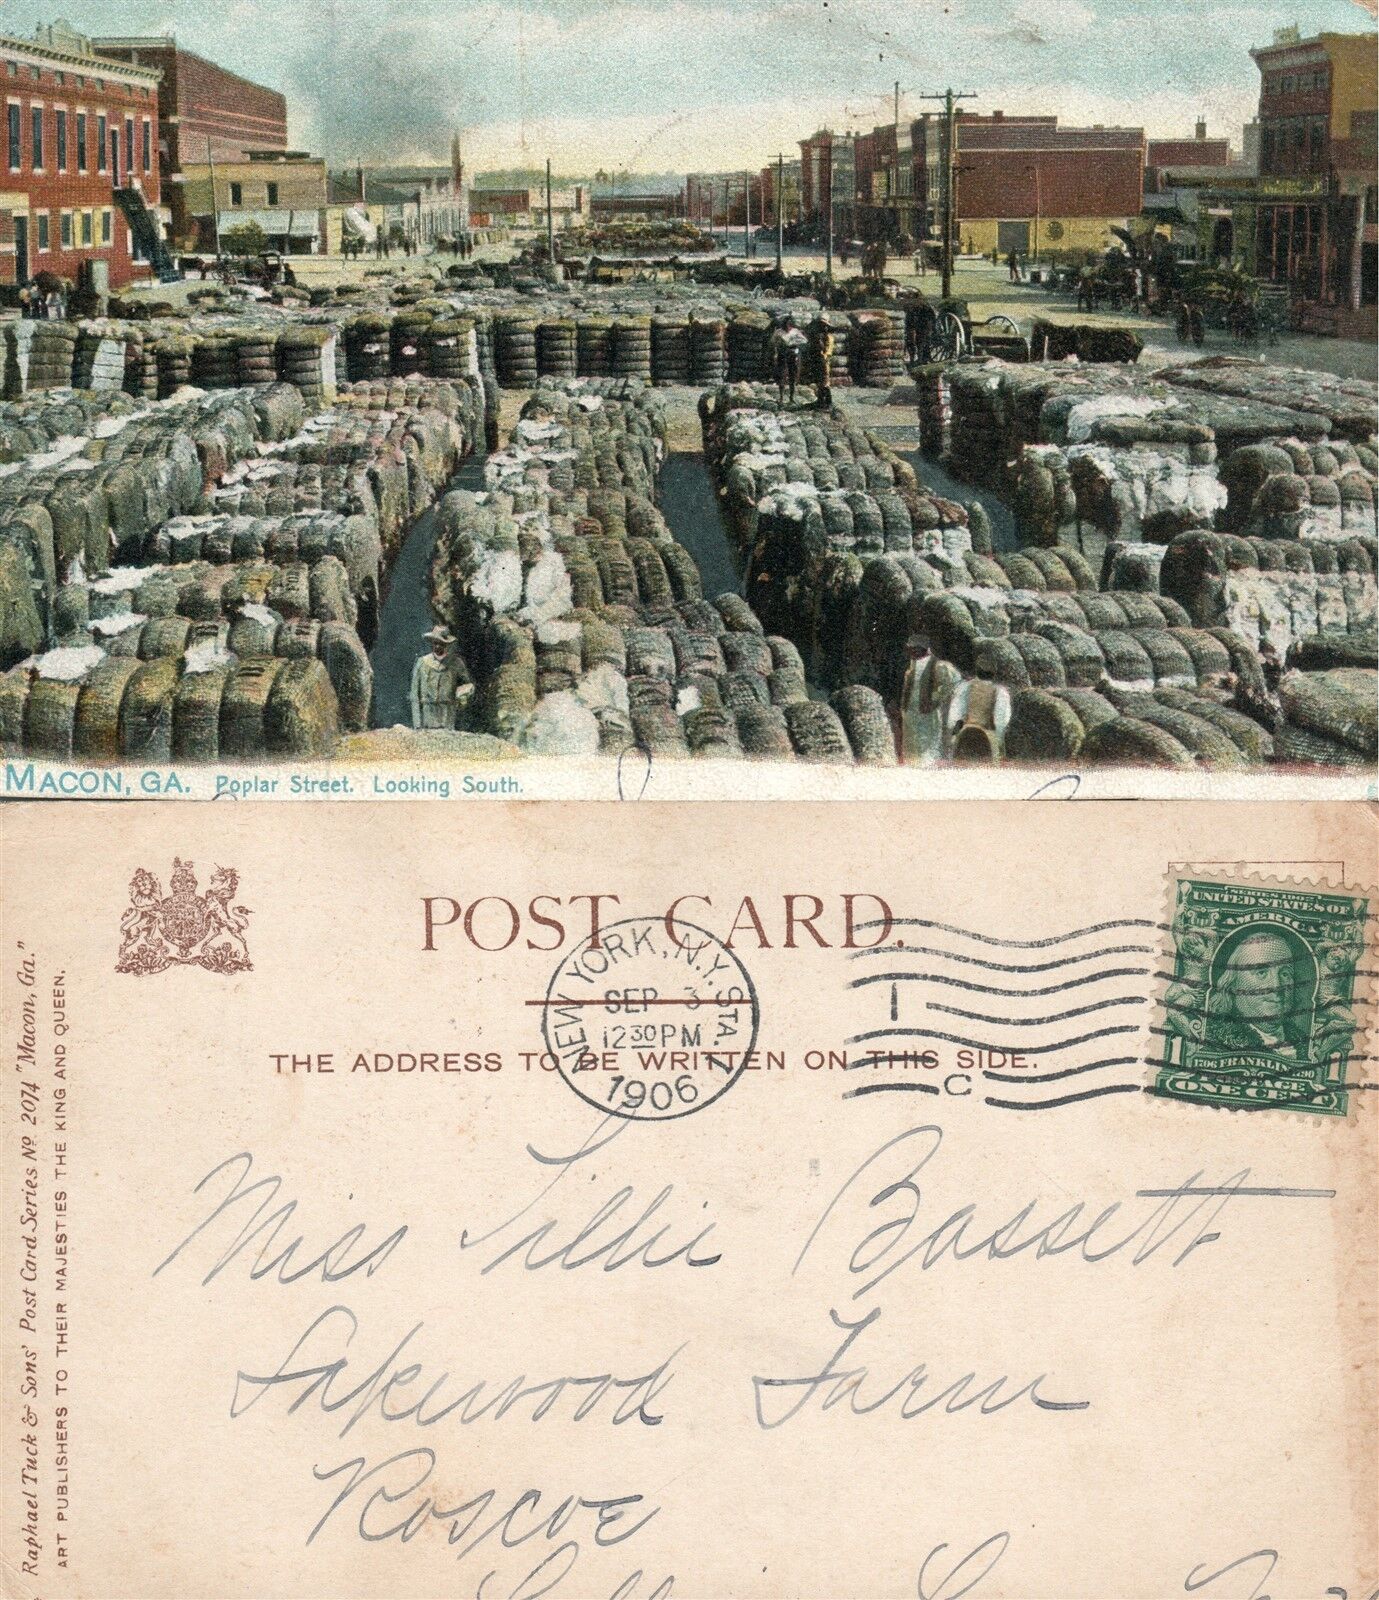 MACON, GA. Poplar Street. Looking South.
POST CARD.
NEW YORK, N.Y. STA.
SEP 3
12 30 PM
1906
1
C
SERIES 1902
UNITED STATES OF
AMERICA
1706 FRANKLIN 1790
1 POSTAGE 1
ONE CENT
THE ADDRESS TO BE WRITTEN ON THIS SIDE.
Raphael Tuck & Sons' Post Card Series No 2074 "Macon, Ga."
ART PUBLISHERS TO THEIR MAJESTIES THE KING AND QUEEN.
Miss Lillie Bassett
Lakewood Farm
Roscoe